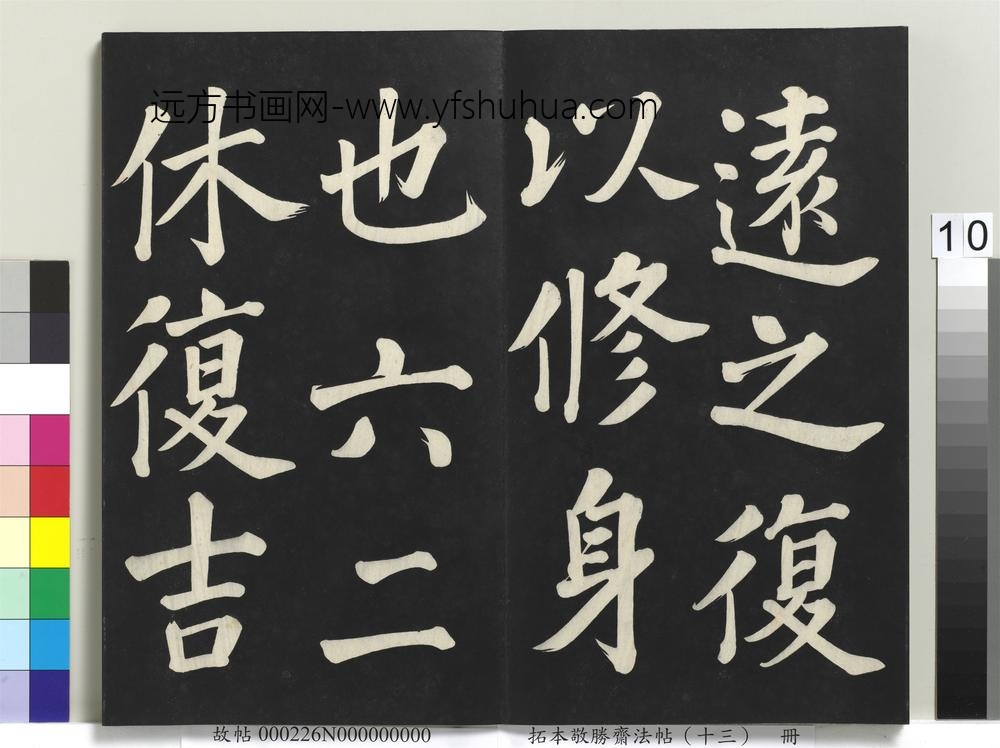 远方书画网-www.yfshuhua.com
遠之復
以修身
也六二
休復吉
10
故帖 000226N000000000
拓本敬勝齋法帖（十三） 冊